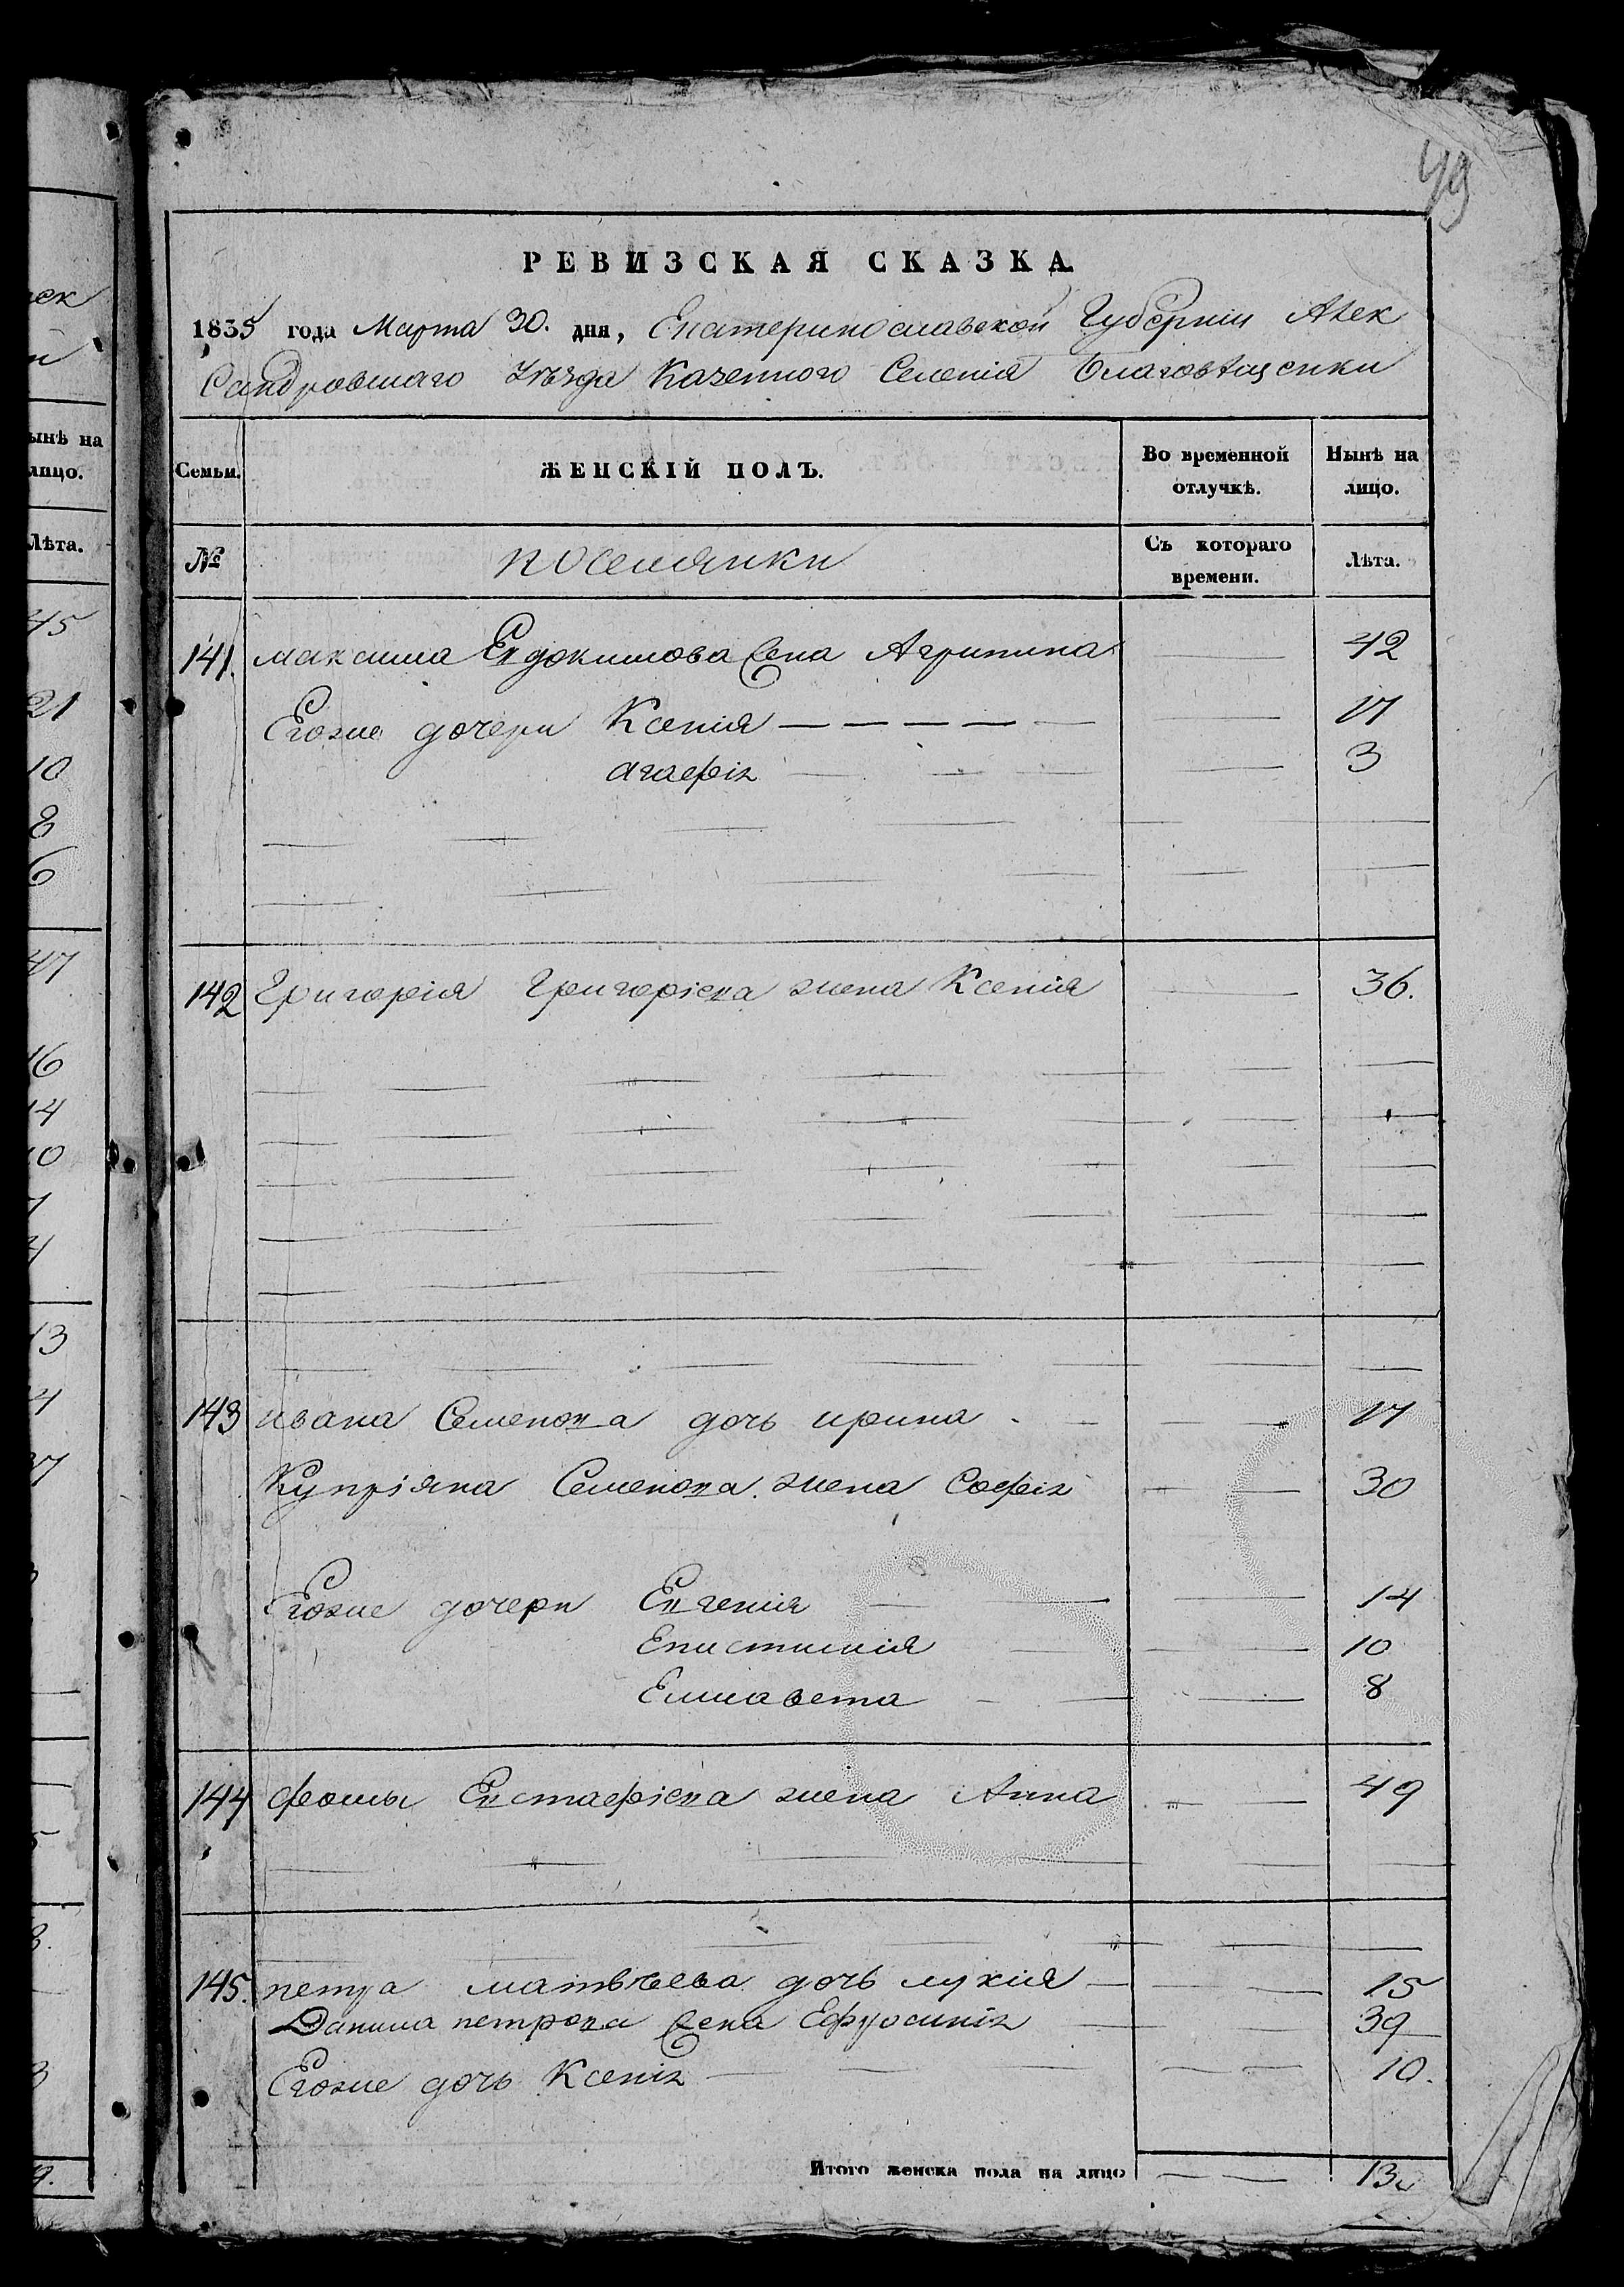 49
РЕВИЗСКАЯ СКАЗКА
1835 года Марта 30. дня, Екатеринославской Губерніи Алек
Сандровшаго Уѣзда Казенного Селенія Благовѣщенки
Семьи.
ЖЕНСКІЙ ПОЛЪ.
Во временной отлучкѣ.
Нынѣ на лицо.
№
поселянки
Съ котораго времени.
Лѣта.
141. максима Евдокимова жена Агрипина 42
Егоже дочери Ксенія 17
агафія 3
142 Григорія Григоріева жена Ксенія 36.
143 ивана Семенова дочь ирина 17
Купріяна Семенова жена Софія 30
Егоже дочери Евгенія 14
Епистимія 10
Елисавета 8
144 фомы Евстафіева жена Анна 49
145. петра матвѣева дочь лукія 15
Данила петрова жена Ефросинія 39
Егоже дочь Ксенія 10.
Итого женска пола на лицо 13
ынѣ на
лицо.
Лѣта.
45
21
10
8
6
47
16
14
10
13